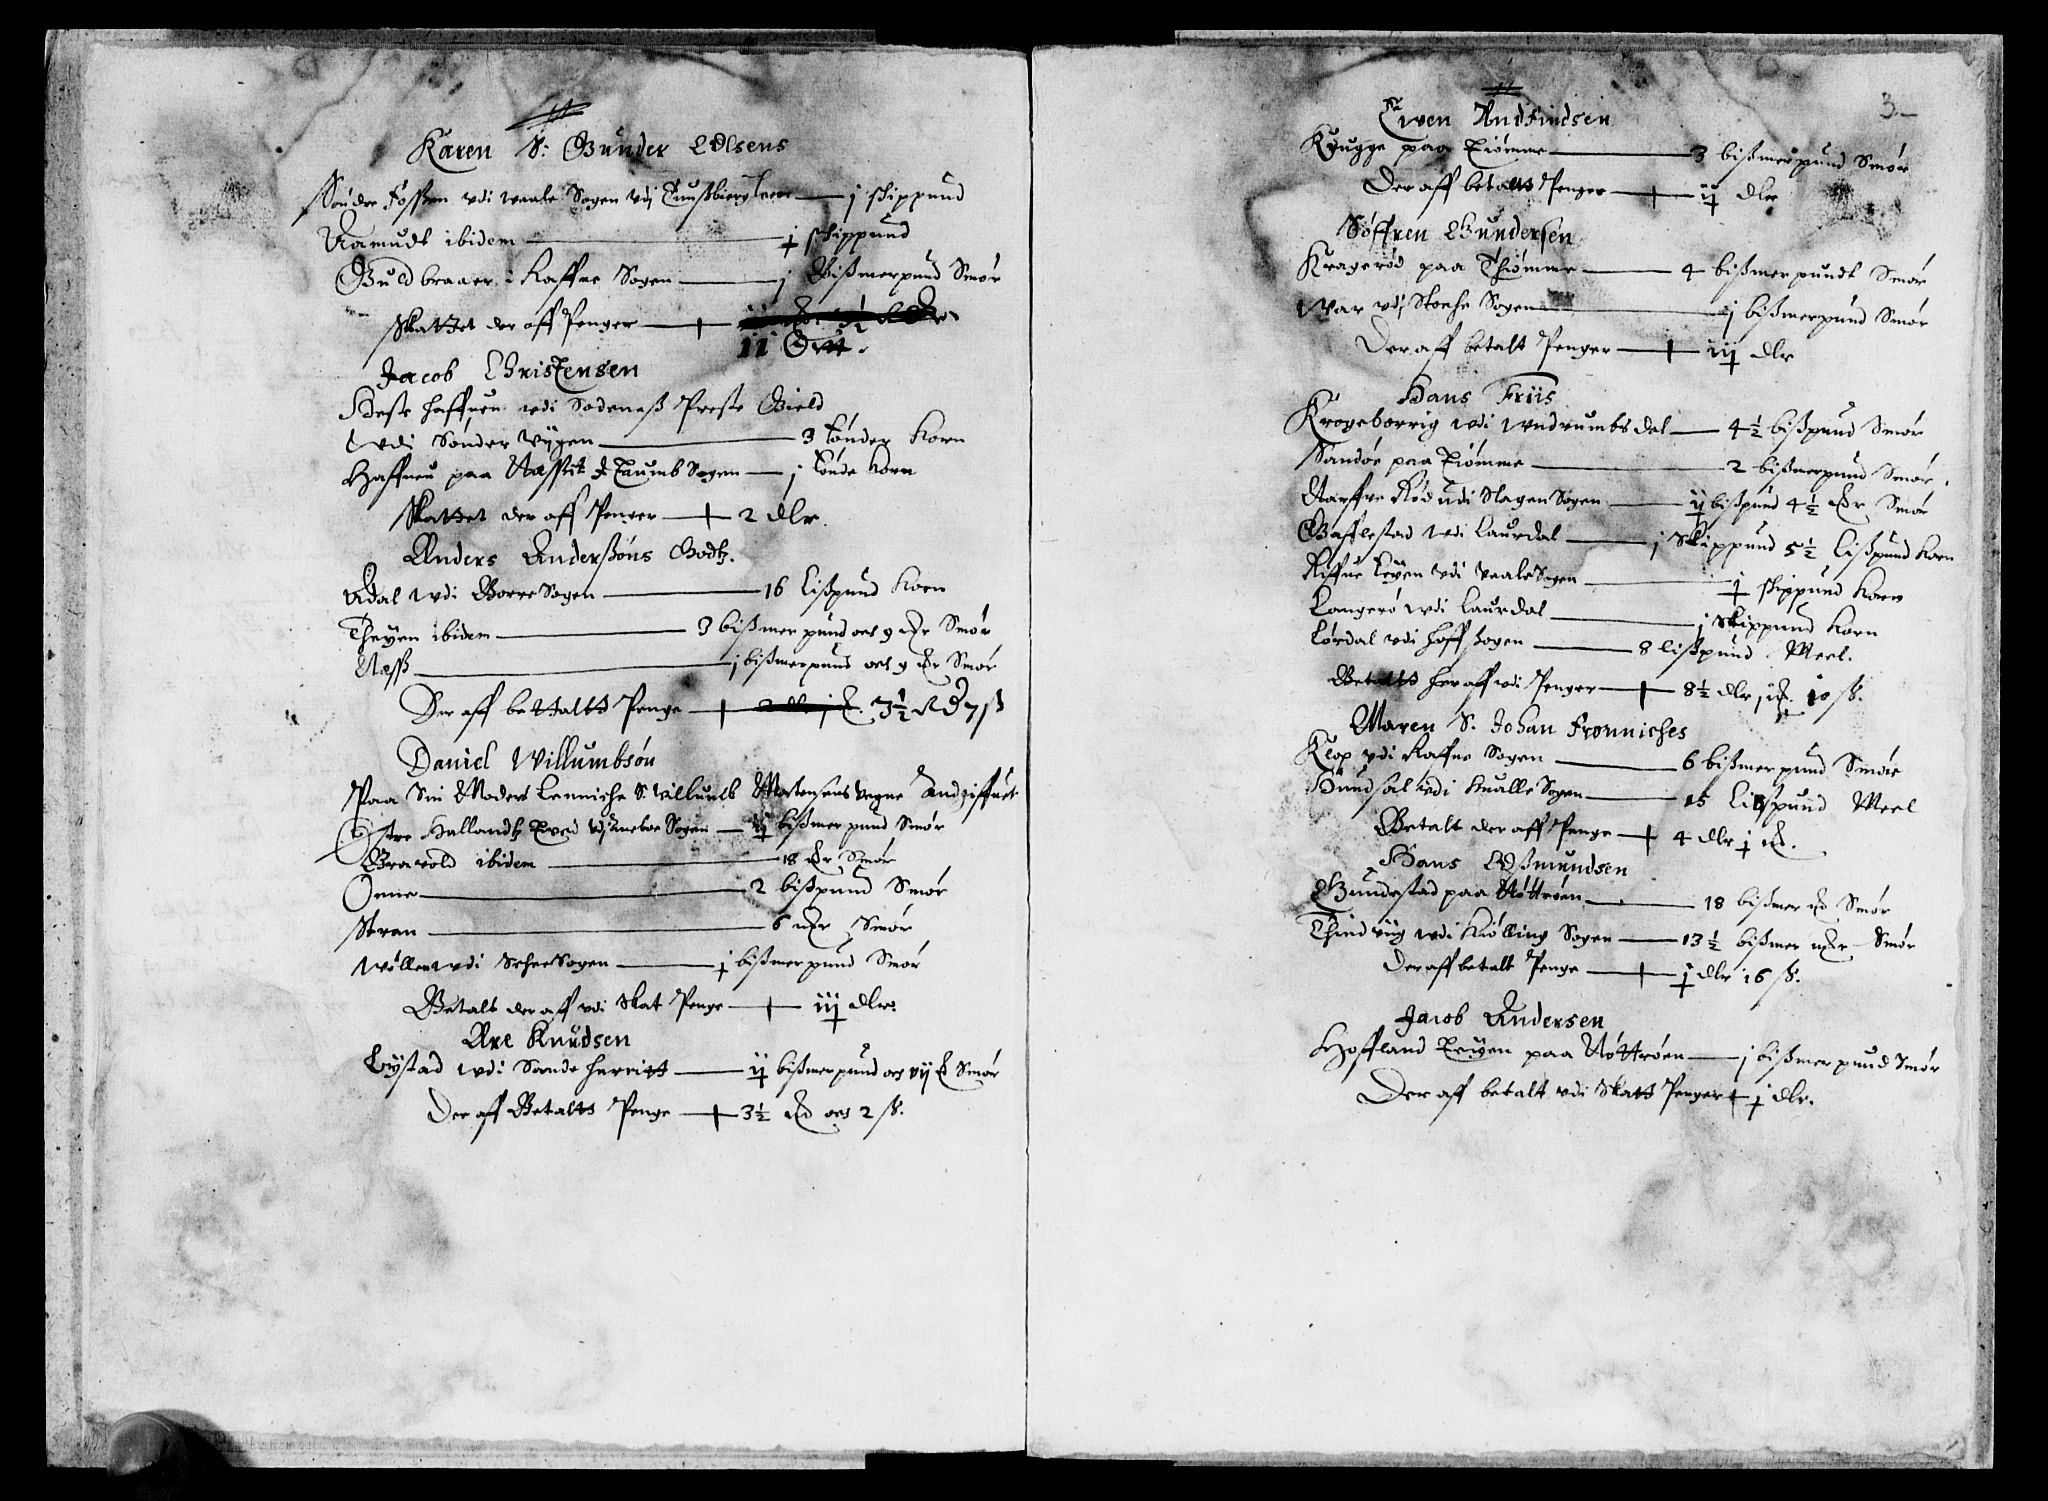 Karen S: Gunder Ollsens
Søndre Fossen vdi vaale Sogen vdj Tunßberg Leen — j skippund
Ramudt ibidem — j skippund
Guldbraaer i Raffne Sogen — j Bißmerpund Smør
Skattet der aff Penger —
ii Ort.
Jacob Christensen
Heste haffuen vdi Sodenaß Preste Gield
Wdi Sønder Vygen — 3 tønder Korn
Haffneu paa Sogen — j tønde Korn
Skattet der aff Penger — 2 dlr.
Anders Anderßøns Godtz.
Adal wdi Borre Sogen — 16 lißpund Korn
Theyen ibidem — 3 bißmer pund oc 9 Smør
Næss — j bißmerpund oc 9 Smør
Der aff bettaltt Penge — 3½ 7 ß
Daniel Willumbsøn
Paa Sin Moders Lenniche S. Villumb Mortensens Vegne Andgiffuet
Østre Hallandtz Eyed vdj Sogen — ij bißmer pund Smør
Gravold ibidem — 18 Smør
Orne — 2 bißpund Smør
Stran — 6 Smør
Wøllen wdi Schee Sogen — j bißmer pund Smør
Betalt der aff vdi Skat Penge — iij dlr.
Are Knudsen
Bystad wdi Sande herritt — ij bißmerpund oc vij Smør
Der aff Betaltt Penge — 3½ oc 2 ß.
3
Ewen Andfindsen
Kiugge paa Tiømme — 3 bißmer pund Smør
Der aff betaltt Penger — ij dlr
Søffren Gundersen
Kragerød paa Thiømme — 4 bißmer pundt Smør
War vdj Stoche Sogen — j bißmerpund Smør
Der aff betalt Penger — iij dlr
Hans Friis
Krogeborrig wdi wndrumbs dal — 4½ bißpund Smør
Sandøe paa Tiømme — 2 bißmerpund Smør.
Narffve Rød udi Slagen Sogen — ij bißpund 4½ Smør
Gafflestad wdi Laurdal — j Skippund 5½ lißpund Korn
Riffue Teyen vdi Vaale Sogen — j skippund Korn
Langerø wdi Laurdal — j Skippund Korn
Lørdal vdi hoff sogen — 8 lißpund Meel.
Betaltt her aff vdi Penger — 8½ dlr j 10 ß.
Maren S. Johan Frønniches
Klop vdi Raffne Sogen — 6 bißmer pund Smøer
Hundsal wdi Hualle Sogen — 15 Lißpund Meel
Betalt der aff Penge — 4 dlr j
Hans Oßmundsen
Gundestad paa Nøttrøen — 18 bißmer Smør
Thind viig wdi Kiølling Sogen — 13½ bißmer Smør
Der aff betalt Penge — j dlr 16 ß.
Jacob Andersen
Hoffland Teyen paa Nøttrøen — j bißmer pund Smør
Der aff betalt vdi Skatt Penger — j dlr.